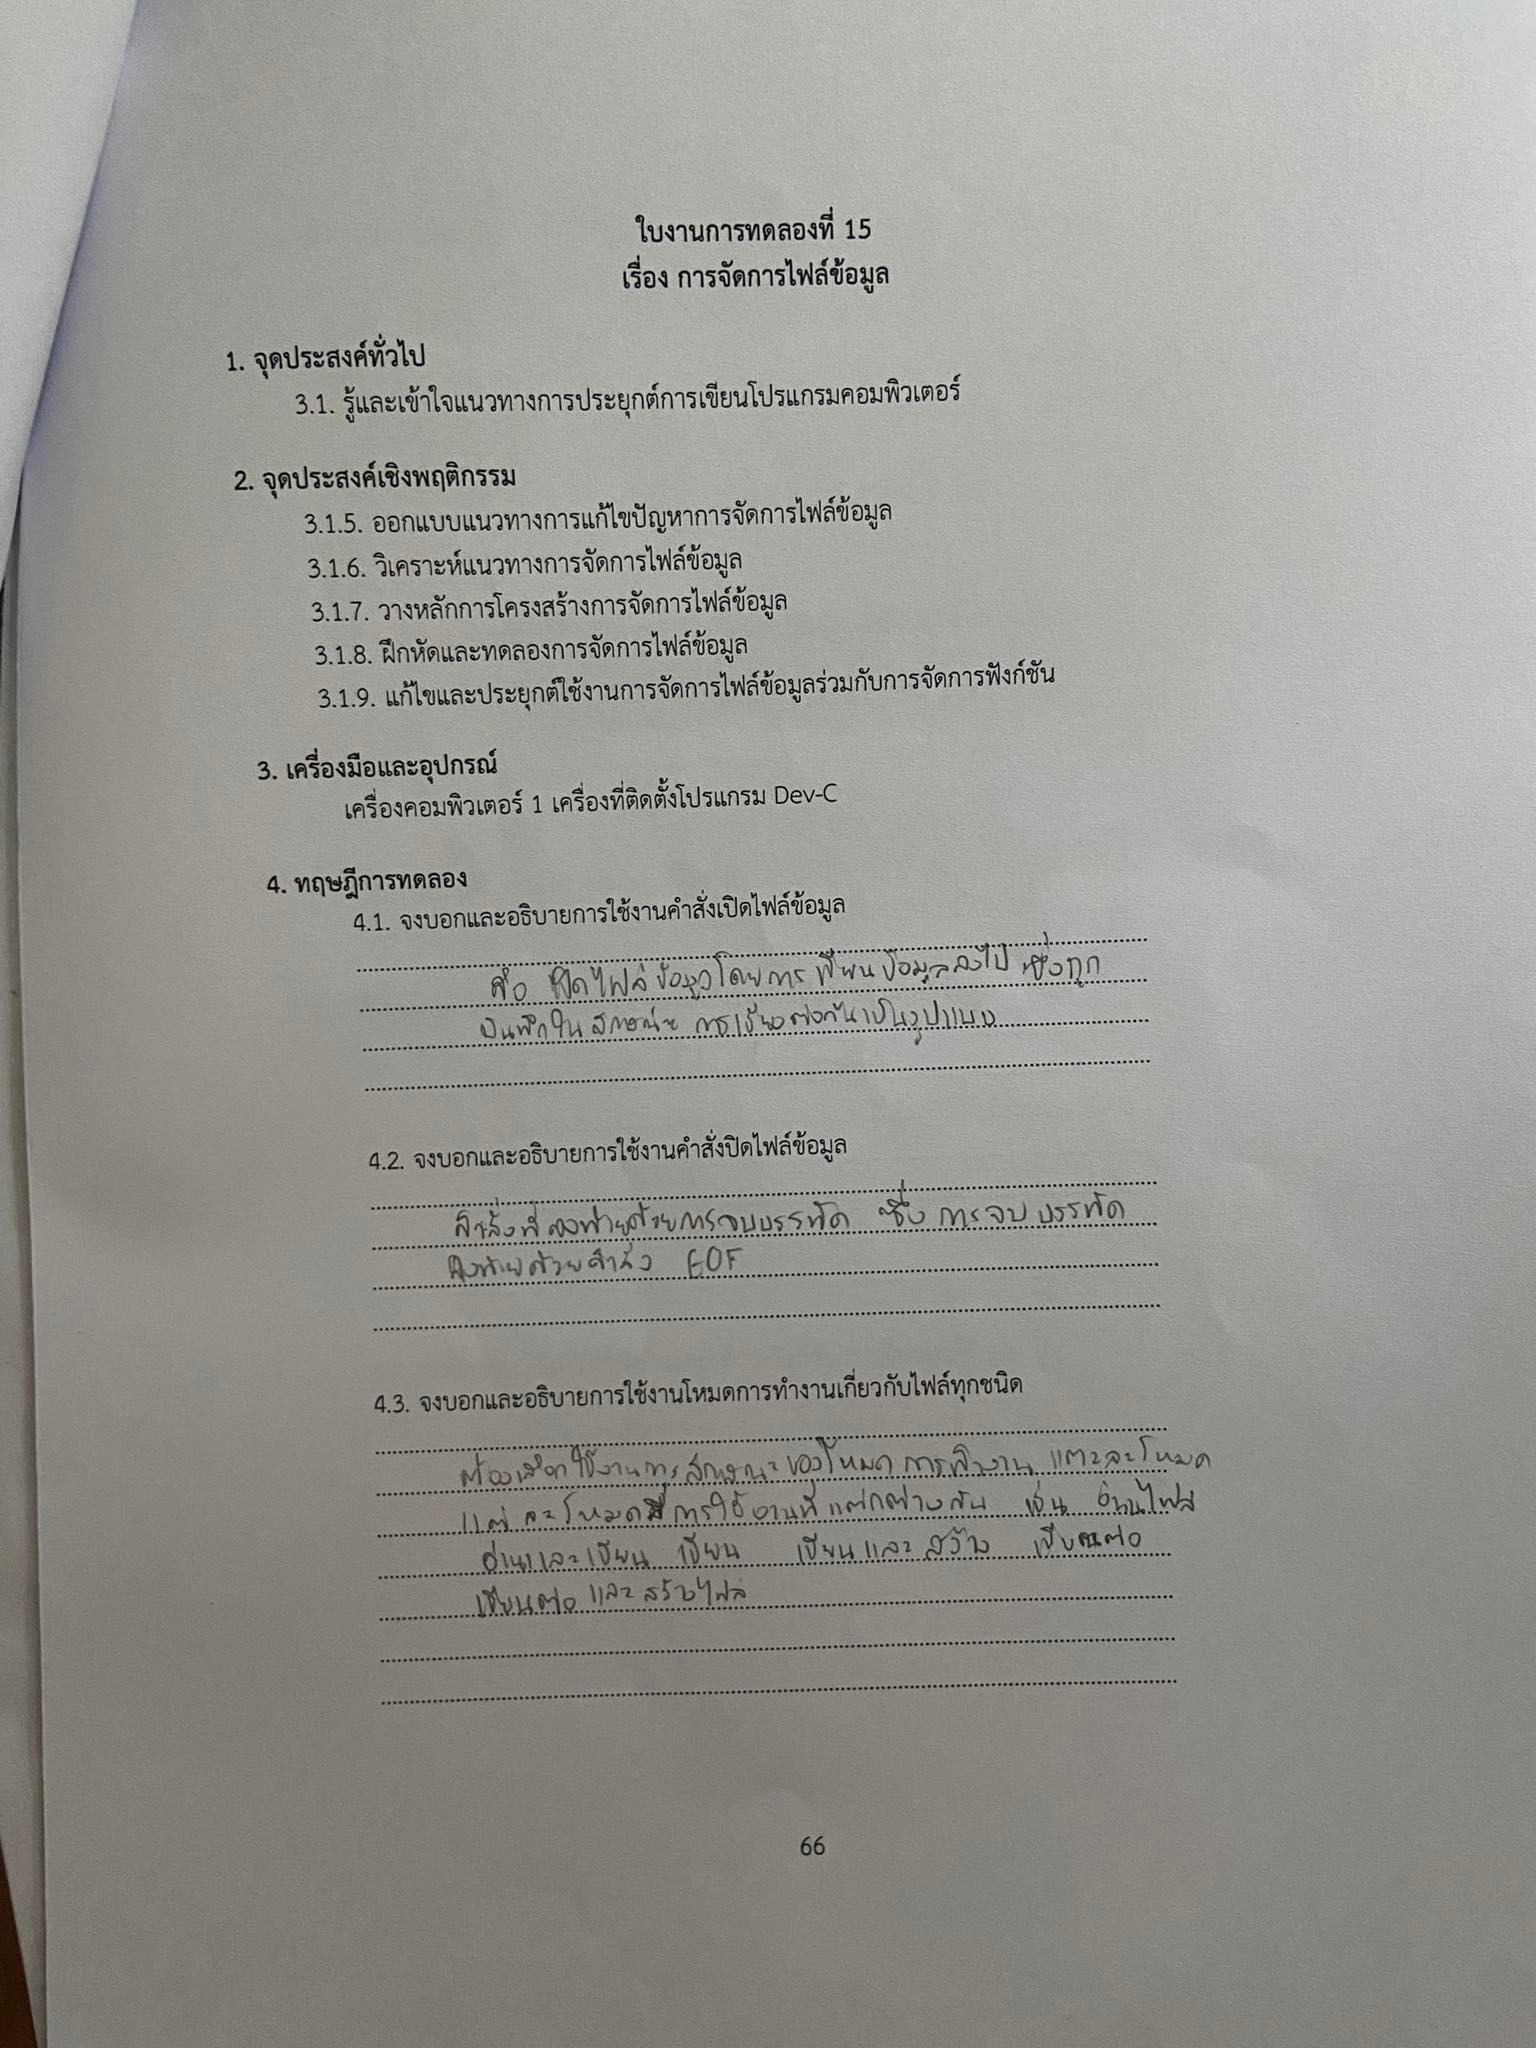 ใบงานการทดลองที่ 15
เรื่อง การจัดการไฟล์ข้อมูล
1. จุดประสงค์ทั่วไป
3.1. รู้และเข้าใจแนวทางการประยุกต์การเขียนโปรแกรมคอมพิวเตอร์
2. จุดประสงค์เชิงพฤติกรรม
3.1.5. ออกแบบแนวทางการแก้ไขปัญหาการจัดการไฟล์ข้อมูล
3.1.6. วิเคราะห์แนวทางการจัดการไฟล์ข้อมูล
3.1.7. วางหลักการโครงสร้างการจัดการไฟล์ข้อมูล
3.1.8. ฝึกหัดและทดลองการจัดการไฟล์ข้อมูล
3.1.9. แก้ไขและประยุกต์ใช้งานการจัดการไฟล์ข้อมูลร่วมกับการจัดการฟังก์ชัน
3. เครื่องมือและอุปกรณ์
เครื่องคอมพิวเตอร์ 1 เครื่องที่ติดตั้งโปรแกรม Dev-C
4. ทฤษฎีการทดลอง
4.1. จงบอกและอธิบายการใช้งานคำสั่งเปิดไฟล์ข้อมูล
คือ เปิดไฟล์ข้อมูลโดยการเขียนข้อมูลลงไป ซึ่งถูก
บันทึกในลักษณะ การเรียงต่อกันเป็นรูปแบบ
4.2. จงบอกและอธิบายการใช้งานคำสั่งปิดไฟล์ข้อมูล
คำสั่งที่ลงท้ายด้วยการจบบรรทัด ซึ่งการจบบรรทัด
ลงท้ายด้วยคำสั่ง EOF
4.3. จงบอกและอธิบายการใช้งานโหมดการทำงานเกี่ยวกับไฟล์ทุกชนิด
ต้องเลือกใช้งาน ลักษณะของโหมดการทำงาน แต่ละโหมด
แต่ละโหมดมีการใช้งานที่แตกต่างกัน เช่น อ่านไฟล์
อ่านและเขียน เขียน เขียนและสร้าง เขียนต่อ
เขียนต่อ และสร้างไฟล์
66